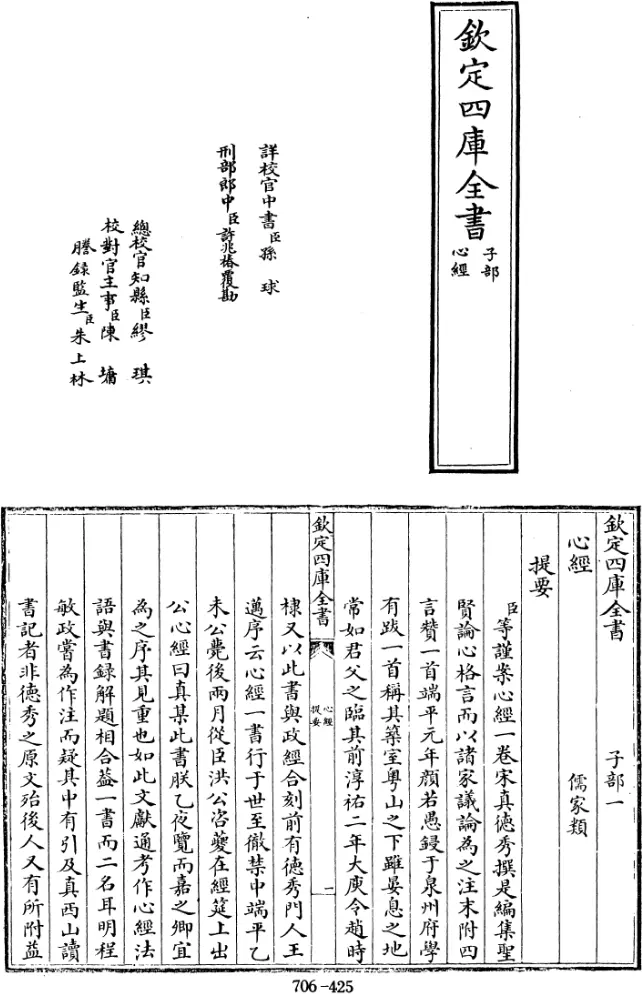 欽定四庫全書
子部
心經
詳校官中書臣孫球
刑部郎中臣許兆椿覆勘
總校官知縣臣繆琪
校對官主事臣陳墉
謄録監生臣朱上林
欽定四庫全書　子部一
心經　儒家類
提要
臣等謹案心經一卷宋真德秀撰是編集聖
賢論心格言而以諸家議論為之注末附四
言贊一首端平元年顔若愚鋟于泉州府學
有跋一首稱其築室粤山之下雖晏息之地
常如君父之臨其前淳祐二年大庾令趙時
欽定四庫全書
心經
提要
一
棣又以此書與政經合刻前有德秀門人王
邁序云心經一書行于世至徹禁中端平乙
未公薨後兩月從臣洪公咨夔在經筵上出
公心經曰真某此書朕乙夜覽而嘉之卿宜
為之序其見重也如此文獻通考作心經法
語與書録解題相合蓋一書而二名耳明程
敏政嘗為作注而疑其中有引及真西山讀
書記者非德秀之原文殆後人又有所附益
706-425